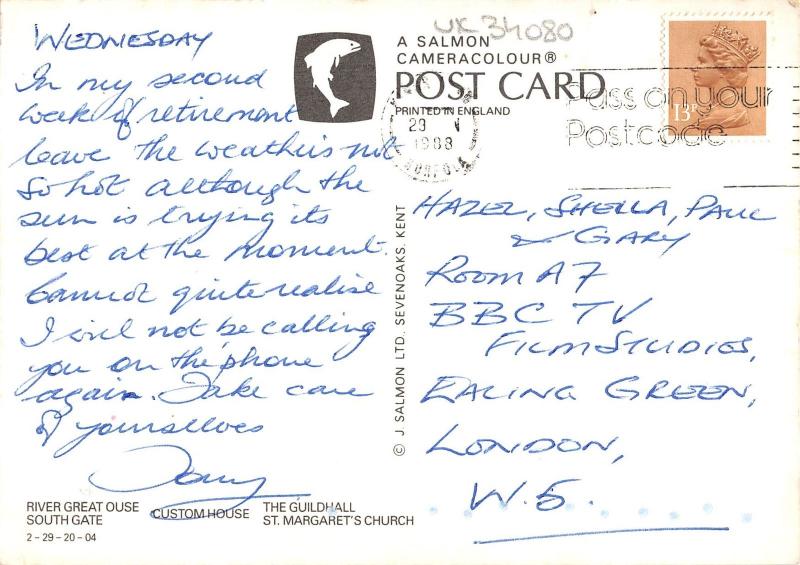 WEDNESDAY
In my second
week of retirement
leave the weather is not
so hot although the
sun is trying its
best at the moment.
Cannot quite realise
I will not be calling
you on the 'phone
again. Take care
of yourselves
Tony
RIVER GREAT OUSE
SOUTH GATE
CUSTOM HOUSE
THE GUILDHALL
ST. MARGARET'S CHURCH
2-29-20-04
UK 34080
A SALMON
CAMERACOLOUR®
POST CARD
PRINTED IN ENGLAND
© J. SALMON LTD. SEVENOAKS. KENT
29
1988
NORFOLK
Pass on your
Postcode
13P
HAZEL, SHEILA, PAUL
& GARY
ROOM A7
BBC TV
FILM STUDIES,
EALING GREEN,
LONDON,
W.5.